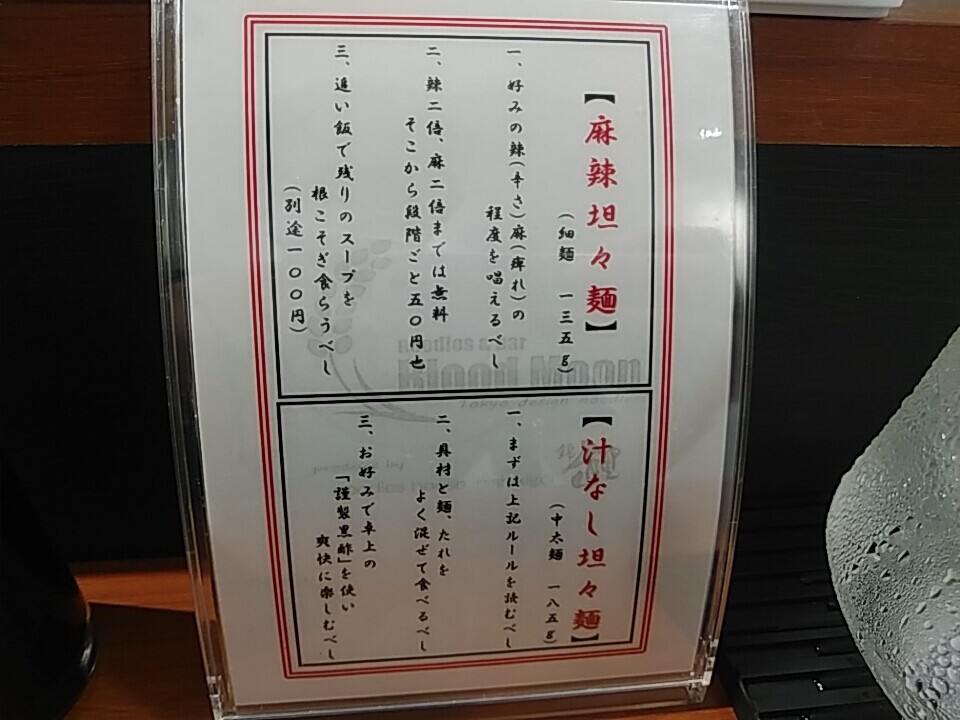 【麻辣坦々麺】
(細麺 一三五g)
一、好みの辣(辛さ)麻(痺れ)の
程度を唱えるべし
二、辣二倍、麻二倍までは無料
そこから段階ごと五〇円也
三、追い飯で残りのスープを
根こそぎ食らうべし
(別途一〇〇円)
【汁なし坦々麺】
(中太麺 一八五g)
一、まずは上記ルールを読むべし
二、具材と麺、たれを
よく混ぜて食べるべし
三、お好みで卓上の
「謹製黒酢」を使い
爽快に楽しむべし
Noodles & Bar
Blood Moon